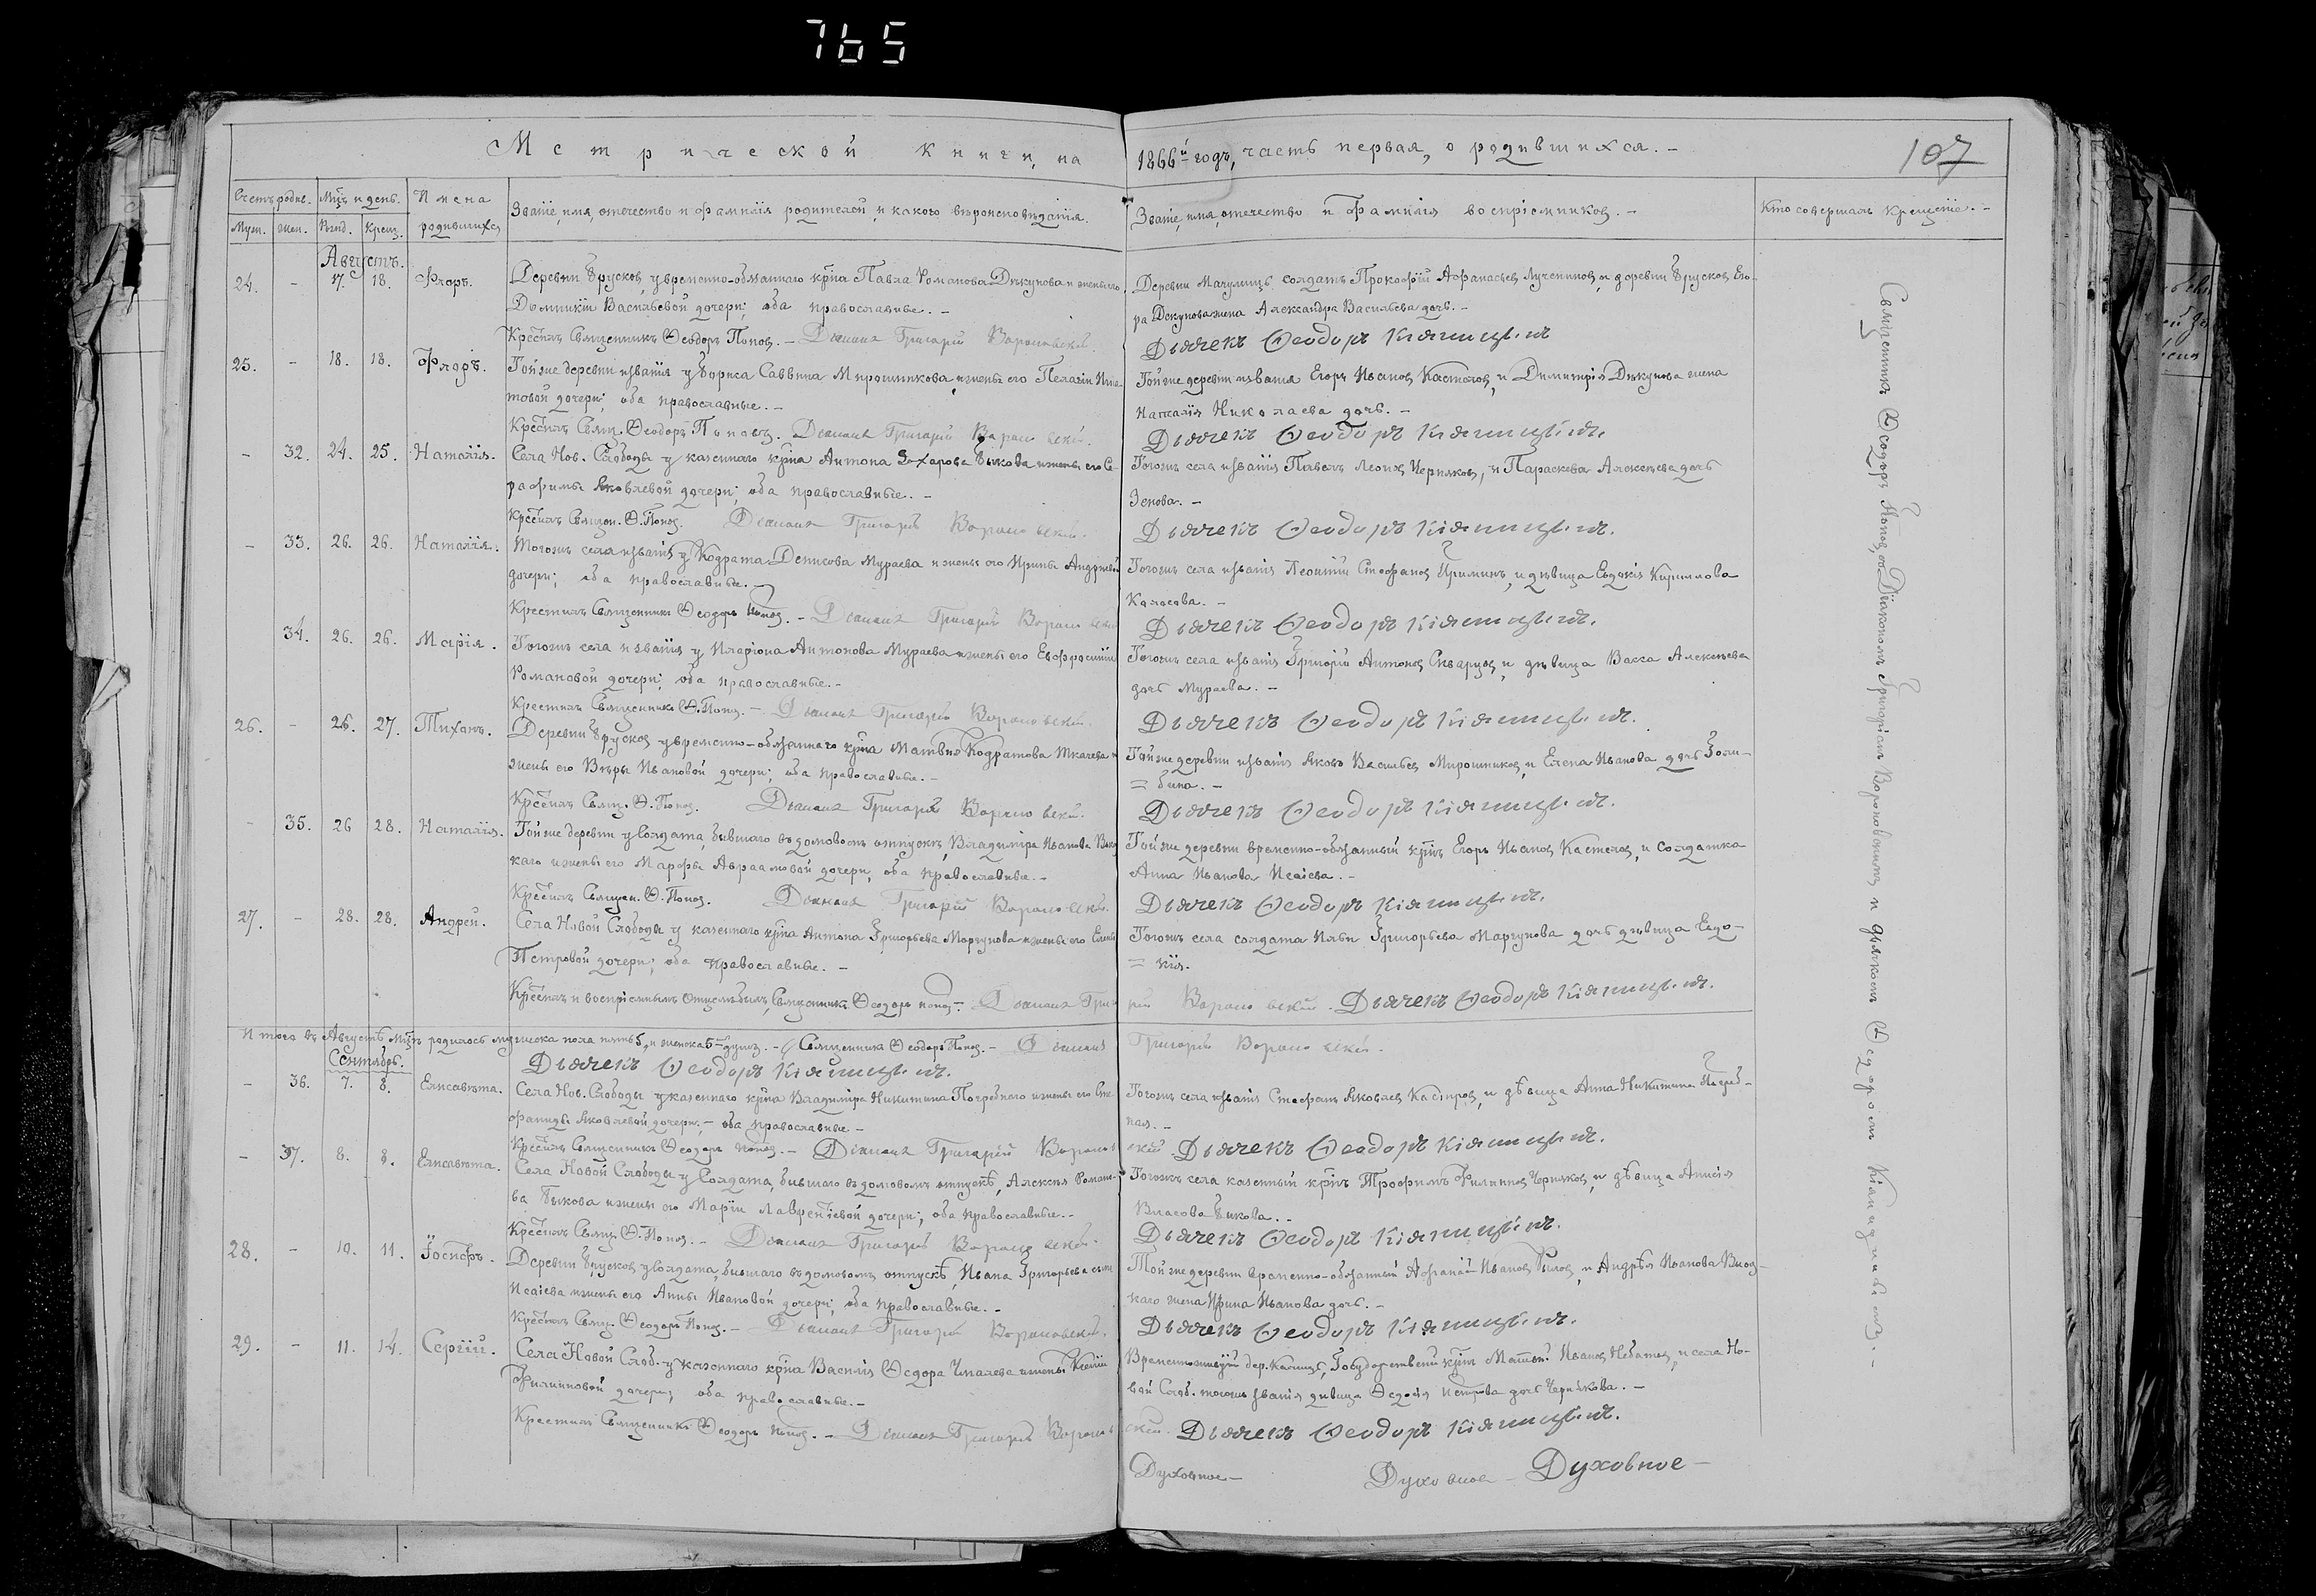 765
Метрической книги, на 1866й годъ, часть первая, о родившихся. –
107
Счетъ родив. Мцъ и день. Имена Званіе, имя, отчество и фамилія родителей, и какого вѣроисповѣданія. Званіе, имя, отчество и фамилія воспріемниковъ. – Кто совершалъ крещеніе. –
Муж. Жен. Рожд. Крещ. родившихся
Августъ.
24. – 17. 18. Флоръ. Деревни Брусковъ, у временно-обязаннаго кр̃на Павла Романова Дѣкунова и жены его
Домникіи Васильевой дочери; оба православные. –
Крестилъ Священникъ Ѳеодоръ Поповъ. – Діаконъ Григорій Вороновскій.
Деревни солдатъ Прокофій Афанасьевъ и деревни Брусковъ Его-
ра Дѣкунова жена Александра Васильева дочь. –
Дьячекъ Ѳеодоръ Кіяницынъ
25. – 18. 18. Флоръ. Той же деревни и званія у Бориса Саввина Мирошникова, и жены его Пелагіи Ипа-
товой дочери; оба православные. –
Крестилъ Свящ. Ѳеодоръ Поповъ. Діаконъ Григорій Вороновскій.
Той же деревни и званія Егоръ Ивановъ Кастеловъ, и Димитрія Дѣкунова жена
Наталія Николаева дочь. –
Дьячекъ Ѳеодоръ Кіяницынъ.
– 32. 24. 25. Наталія. Села Нов. Слободы у казеннаго кр̃на Антона Захарова Быкова и жены его Се-
рафимы Яковлевой дочери; оба православные. –
Крестилъ Священ. Ѳ. Поповъ. Діаконъ Григорій Вороновскій.
Тогожъ села и званія Павелъ Леоновъ Черняковъ, и Параскева Алексѣева дочь
Зенова. –
Дьячекъ Ѳеодоръ Кіяницынъ.
– 33. 26. 26. Наталія. Тогожъ села и званія у Кодрата Денисова Мураева и жены его Ирины Андреевой
дочери; оба православные. –
Крестилъ Священникъ Ѳеодоръ Поповъ. – Діаконъ Григорій Вороновскій
Тогожъ села и званія Леонтій Стефановъ и дѣвица Евдокія Кириллова
Колосова. –
Дьячекъ Ѳеодоръ Кіяницынъ.
34. 26. 26. Марія. Тогожъ села и званія у Иларіона Антонова Мураева и жены его Евфросиніи
Романовой дочери; оба православные. –
Крестилъ Священникъ Ѳ. Поповъ. – Діаконъ Григорій Вороновскій.
Тогожъ села и званія Григорій Антоновъ Скварцовъ, и дѣвица Васса Алексѣева
дочь Мураева. –
Дьячекъ Ѳеодоръ Кіяницынъ.
26. – 26. 27. Тихонъ. Деревни Брусковъ у временно-обязаннаго кр̃на Матвѣя Кодратова Ткачева и
жены его Вѣры Ивановой дочери; оба православные. –
Крестилъ Свящ. Ѳ. Поповъ. Діаконъ Григорій Вороновскій.
Той же деревни и званія Яковъ Васильевъ Мирошниковъ, и Елена Иванова дочь Золи-
= бина. –
Дьячекъ Ѳеодоръ Кіяницынъ.
– 35. 26 28. Наталія. Той же деревни у солдата, бывшаго въ домовомъ отпускѣ, Владиміра Иванова
каго и жены его Марфы Авраамовой дочери, оба православные. –
Крестилъ Священ. Ѳ. Поповъ. Діаконъ Григорій Вороновскій.
Той же деревни временно-обязанный кр̃нъ Егоръ Ивановъ Кастеловъ, и солдатка
Анна Иванова Исаіева. –
Дьячекъ Ѳеодоръ Кіяницынъ.
27. – 28. 28. Андрей. Села Новой Слободы у казеннаго кр̃на Антона Григорьева Моргунова и жены его Елены
Петровой дочери; оба православные. –
Крестилъ и воспріемнымъ отцемъ былъ Священникъ Ѳеодоръ Поповъ – Діаконъ Григорій Вороновскій. Дьячекъ Ѳеодоръ Кіяницынъ.
Тогожъ села солдата Ильи Григорьева Маргунова дочь дѣвица Евдо-
= кія.
Итого въ Августѣ мцѣ родилось мужеска пола пять 5, и женска 5 душъ. – Священникъ Ѳеодоръ Поповъ. – Діаконъ Григорій Вороновскій.
Сентябрь. Дьячекъ Ѳеодоръ Кіяницынъ.
– 36. 7. 8. Елисавета. Села Нов. Слободы у казеннаго кр̃на Владиміра Никитина Погребнаго и жены его Сте-
фаниды Яковлевой дочери, – оба православные –
Крестилъ Священникъ Ѳеодоръ Поповъ. – Діаконъ Григорій Вороновскій. Дьячекъ Ѳеодоръ Кіяницынъ.
Тогожъ села и званія Стефанъ Яковлевъ и дѣвица Анна Никитина Погреб-
ная. –
– 37. 8. 8. Елисавета. Села Новой Слободы у солдата, бывшаго въ домовомъ отпускѣ, Алексѣя Романо-
ва Быкова и жены его Маріи Лаврентіевой дочери; оба православные. –
Крестилъ Свящ. Ѳ. Поповъ. – Діаконъ Григорій Вороновскій.
Тогожъ села казенный кр̃нъ Трофимъ Филиповъ Черняковъ, и дѣвица Анисія
Власова Быкова. –
Дьячекъ Ѳеодоръ Кіяницынъ.
28. – 10. 11. Іосифъ. Деревни Брусковъ у солдата, бывшаго въ домовомъ отпускѣ, Ивана Григорьева сына
Исаіева и жены его Анны Ивановой дочери; оба православные. –
Крестилъ Свящ. Ѳеодоръ Поповъ. – Діаконъ Григорій Вороновскій.
Той же деревни временно-обязанный Афанасій Ивановъ и Андрея Иванова
каго жена Ирина Иванова дочь. –
Дьячекъ Ѳеодоръ Кіяницынъ.
29. – 11. 14. Сергій. Села Новой Слоб. у казеннаго кр̃на Василія Ѳедора и жены Ксеніи
Филиповой дочери; оба православные. –
Крестилъ Священникъ Ѳеодоръ Поповъ. – Діаконъ Григорій Вороновскій. Дьячекъ Ѳеодоръ Кіяницынъ.
дер. Государственный кр̃нъ Матвѣй Ивановъ и села Но-
вой Слоб. тогожъ званія дѣвица Ѳедосія Петрова дочь Чернякова. –
Духовное – Духовное – Духовное –
Священникъ Ѳеодоръ Поповъ, съ Діакономъ Григоріемъ Вороновскимъ и дьячкомъ Ѳеодоромъ Кіяницынымъ. –